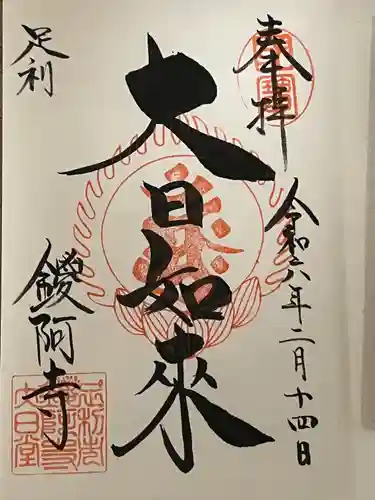 奉拝
令和六年二月十四日
大日如来
足利
鑁阿寺
大日堂